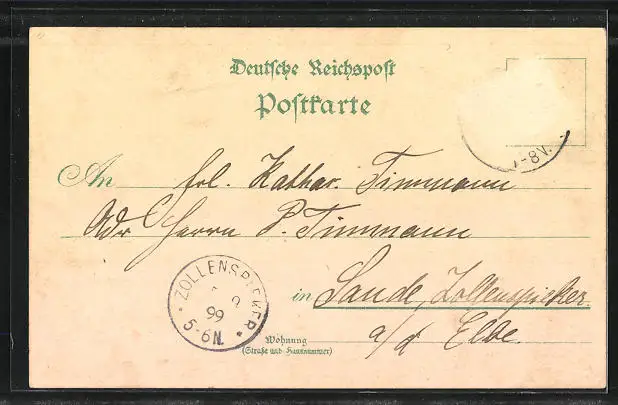 Deutsche Reichspost
Postkarte
-8V.
An Frl. Kathar. Timmann
Adr Herrn P. Timmann
in Sande, Zollenspieker
a/d Elbe.
ZOLLENSPIEKER
99
5-6N.
Wohnung
(Straße und Hausnummer)